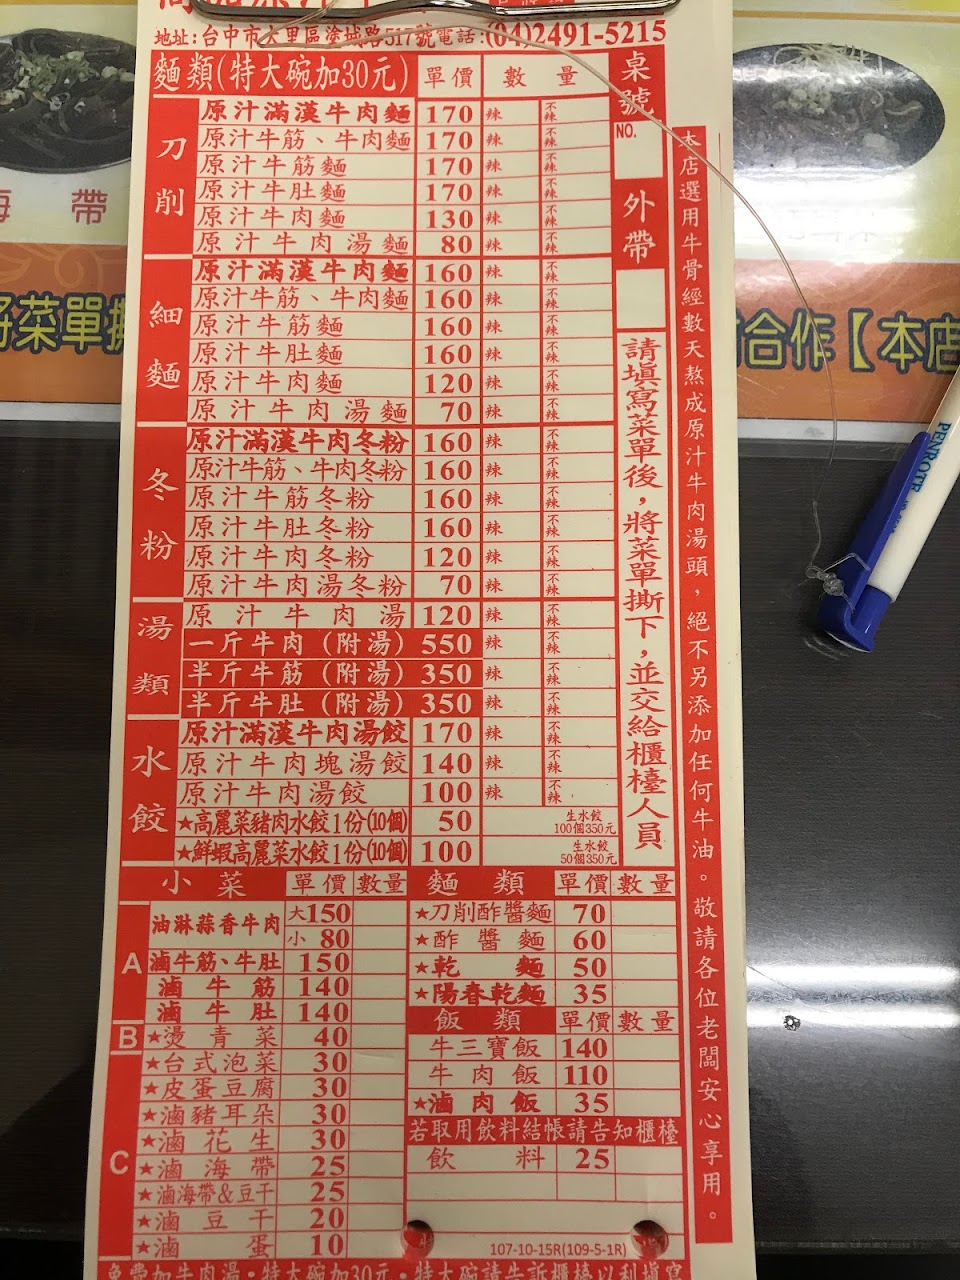 地址:台中市大里區塗城路517號電話:(04)2491-5215
麵類(特大碗加30元) 單價 數量 桌號
NO.
外帶
刀削
原汁滿漢牛肉麵 170 辣 不辣
原汁牛筋、牛肉麵 170 辣 不辣
原汁牛筋麵 170 辣 不辣
原汁牛肚麵 170 辣 不辣
原汁牛肉麵 130 辣 不辣
原汁牛肉湯麵 80 辣 不辣
細麵
原汁滿漢牛肉麵 160 辣 不辣
原汁牛筋、牛肉麵 160 辣 不辣
原汁牛筋麵 160 辣 不辣
原汁牛肚麵 160 辣 不辣
原汁牛肉麵 120 辣 不辣
原汁牛肉湯麵 70 辣 不辣
冬粉
原汁滿漢牛肉冬粉 160 辣 不辣
原汁牛筋、牛肉冬粉 160 辣 不辣
原汁牛筋冬粉 160 辣 不辣
原汁牛肚冬粉 160 辣 不辣
原汁牛肉冬粉 120 辣 不辣
原汁牛肉湯冬粉 70 辣 不辣
湯類
原汁牛肉湯 120 辣 不辣
一斤牛肉(附湯) 550 辣 不辣
半斤牛筋(附湯) 350 辣 不辣
半斤牛肚(附湯) 350 辣 不辣
水餃
原汁滿漢牛肉湯餃 170 辣 不辣
原汁牛肉塊湯餃 140 辣 不辣
原汁牛肉湯餃 100 辣 不辣
★高麗菜豬肉水餃1份(10個) 50 生水餃100個350元
★鮮蝦高麗菜水餃1份(10個) 100 生水餃50個350元
請填寫菜單後,將菜單撕下,並交給櫃檯人員
本店選用牛骨經數天熬成原汁牛肉湯頭,絕不另添加任何牛油。敬請各位老闆安心享用。
小菜 單價 數量
A
油淋蒜香牛肉 大150
小 80
滷牛筋、牛肚 150
滷牛筋 140
滷牛肚 140
B
★燙青菜 40
C
★台式泡菜 30
★皮蛋豆腐 30
★滷豬耳朵 30
★滷花生 30
★滷海帶 25
★滷海帶&豆干 25
★滷豆干 20
★滷蛋 10
麵類 單價 數量
★刀削酢醬麵 70
★酢醬麵 60
★乾麵 50
★陽春乾麵 35
飯類 單價 數量
牛三寶飯 140
牛肉飯 110
★滷肉飯 35
若取用飲料結帳請告知櫃檯
飲料 25
107-10-15R(109-5-1R)
免費加牛肉湯・特大碗加30元・特大碗請告訴櫃檯以利填寫
海帶
將菜單
合作【本店
PENROTE